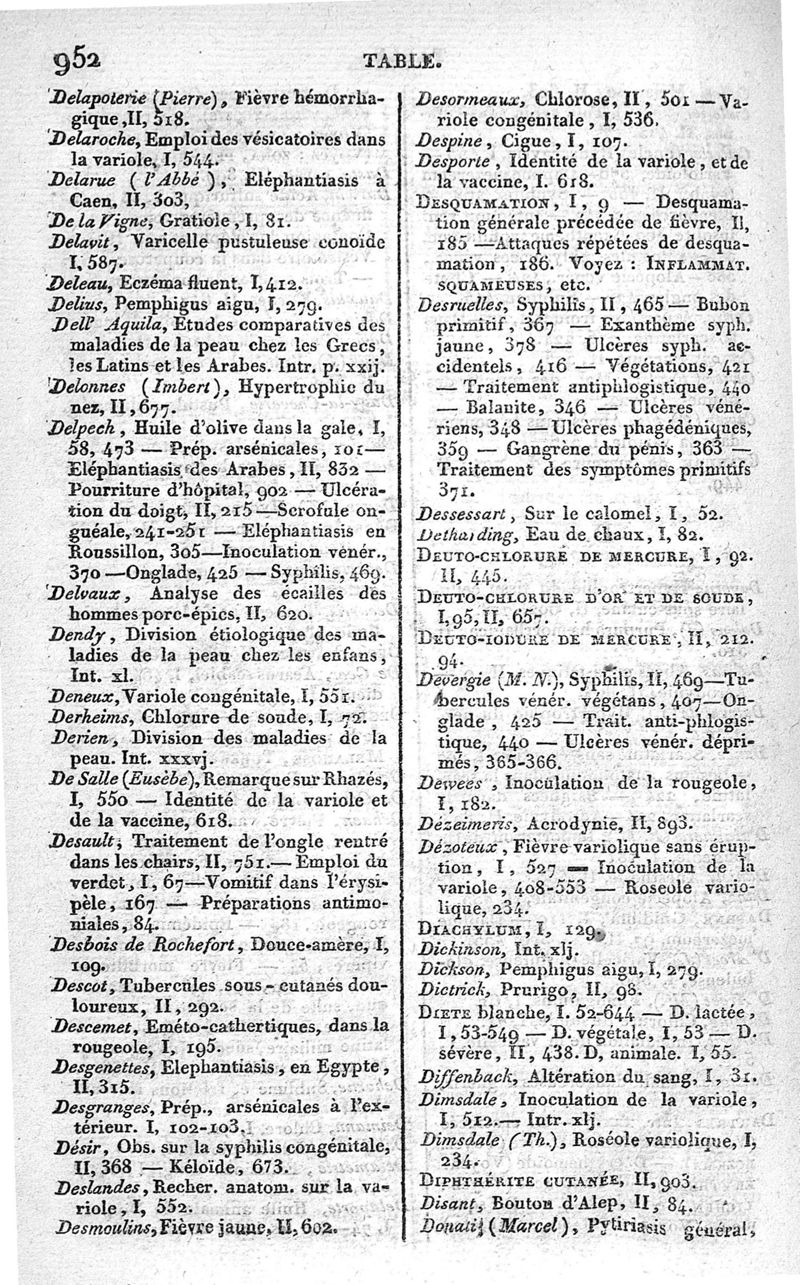 952
TABLE.
Delapoterie (Pierre), Fièvre hémorrha-
gique, II, 518.
Delaroche, Emploi des vésicatoires dans
la variole, I, 544.
Delarue ( l'Abbé ), Eléphantiasis à
Caen, II, 303,
De la Vigne, Gratiole, I, 81.
Delavit, Varicelle pustuleuse conoïde
I, 587.
Deleau, Eczéma fluent, I, 412.
Delius, Pemphigus aigu, I, 279.
Dell' Aquila, Etudes comparatives des
maladies de la peau chez les Grecs,
les Latins et les Arabes. Intr. p. xxij.
Delonnes (Imbert), Hypertrophie du
nez, II, 677.
Delpech, Huile d'olive dans la gale, I,
58, 473 — Prép. arsénicales, 101—
Eléphantiasis des Arabes, II, 832 —
Pourriture d'hôpital, 902 — Ulcéra-
tion du doigt, II, 215 — Scrofule on-
guéale, 241-251 — Eléphantiasis en
Roussillon, 305—Inoculation vénér.,
370 —Onglade, 425 — Syphilis, 469.
Delvaux, Analyse des écailles des
hommes porc-épics, II, 620.
Dendy, Division étiologique des ma-
ladies de la peau chez les enfans,
Int. xl.
Deneux, Variole congénitale, I, 551.
Derheims, Chlorure de soude, I, 72.
Derien, Division des maladies de la
peau. Int. xxxvj.
De Salle (Eusèbe), Remarque sur Rhazés,
I, 550 — Identité de la variole et
de la vaccine, 618.
Desault, Traitement de l'ongle rentré
dans les chairs, II, 751.— Emploi du
verdet, I, 67—Vomitif dans l'érysi-
pèle, 167 — Préparations antimo-
niales, 84.
Desbois de Rochefort, Douce-amère, I,
109.
Descot, Tubercules sous-cutanés dou-
loureux, II, 292.
Descemet, Eméto-cathertiques, dans la
rougeole, I, 195.
Desgenettes, Elephantiasis, en Egypte,
II, 315.
Desgranges, Prép., arsénicales à l'ex-
térieur. I, 102-103.
Désir, Obs. sur la syphilis congénitale,
II, 368 — Kéloïde, 673.
Deslandes, Recher. anatom. sur la va-
riole, I, 552.
Desmoulins, Fièvre jaune, II, 602.
Desormeaux, Chlorose, II, 501 — Va-
riole congénitale, I, 536.
Despine, Cigue, I, 107.
Desporte, Identité de la variole, et de
la vaccine, I. 618.
DESQUAMATION, I, 9 — Desquama-
tion générale précédée de fièvre, II,
185 —Attaques répétées de desqua-
mation, 186. Voyez : INFLAMMAT.
SQUAMEUSES, etc.
Desruelles, Syphilis, II, 465 — Bubon
primitif, 367 — Exanthème syph.
jaune, 378 — Ulcères syph. ac-
cidentels, 416 — Végétations, 421
— Traitement antiphlogistique, 440
— Balanite, 346 — Ulcères véné-
riens, 348 —Ulcères phagédéniques,
359 — Gangrène du pénis, 363 —
Traitement des symptômes primitifs
371.
Dessessart, Sur le calomel, I, 52.
Dethaiding, Eau de chaux, I, 82.
DEUTO-CHLORURE DE MERCURE, I, 92.
II, 445.
DEUTO-CHLORURE D'OR ET DE SOUDE,
I, 95, II, 657.
DEUTO-IODURE DE MERCURE, II, 212.
94.
Devergie (M. N.), Syphilis, II, 469—Tu-
bercules vénér. végétans, 407—On-
glade, 425 — Trait. anti-phlogis-
tique, 440 — Ulcères vénér. dépri-
més, 365-366.
Dewees, Inoculation de la rougeole,
I, 182.
Dezeimeris, Acrodynie, II, 893.
Dézoteux, Fièvre variolique sans érup-
tion, I, 527 — Inoculation de la
variole, 408-553 — Roseole vario-
lique, 234.
DIACHYLUM, I, 129.
Dickinson, Int. xlj.
Dickson, Pemphigus aigu, I, 279.
Dictrick, Prurigo, II, 98.
DIETE blanche, I. 52-644 — D. lactée,
I, 53-549 — D. végétale, I, 53 — D.
sévère, II, 438. D, animale. I, 55.
Diffenback, Altération du sang, I, 31.
Dimsdale, Inoculation de la variole,
I, 512.— Intr. xlj.
Dimsdale (Th.), Roséole variolique, I,
234.
DIPHTHÉRITE CUTANÉE, II, 903.
Disant, Bouton d'Alep, II, 84.
Donati (Marcel), Pytiriasis général,